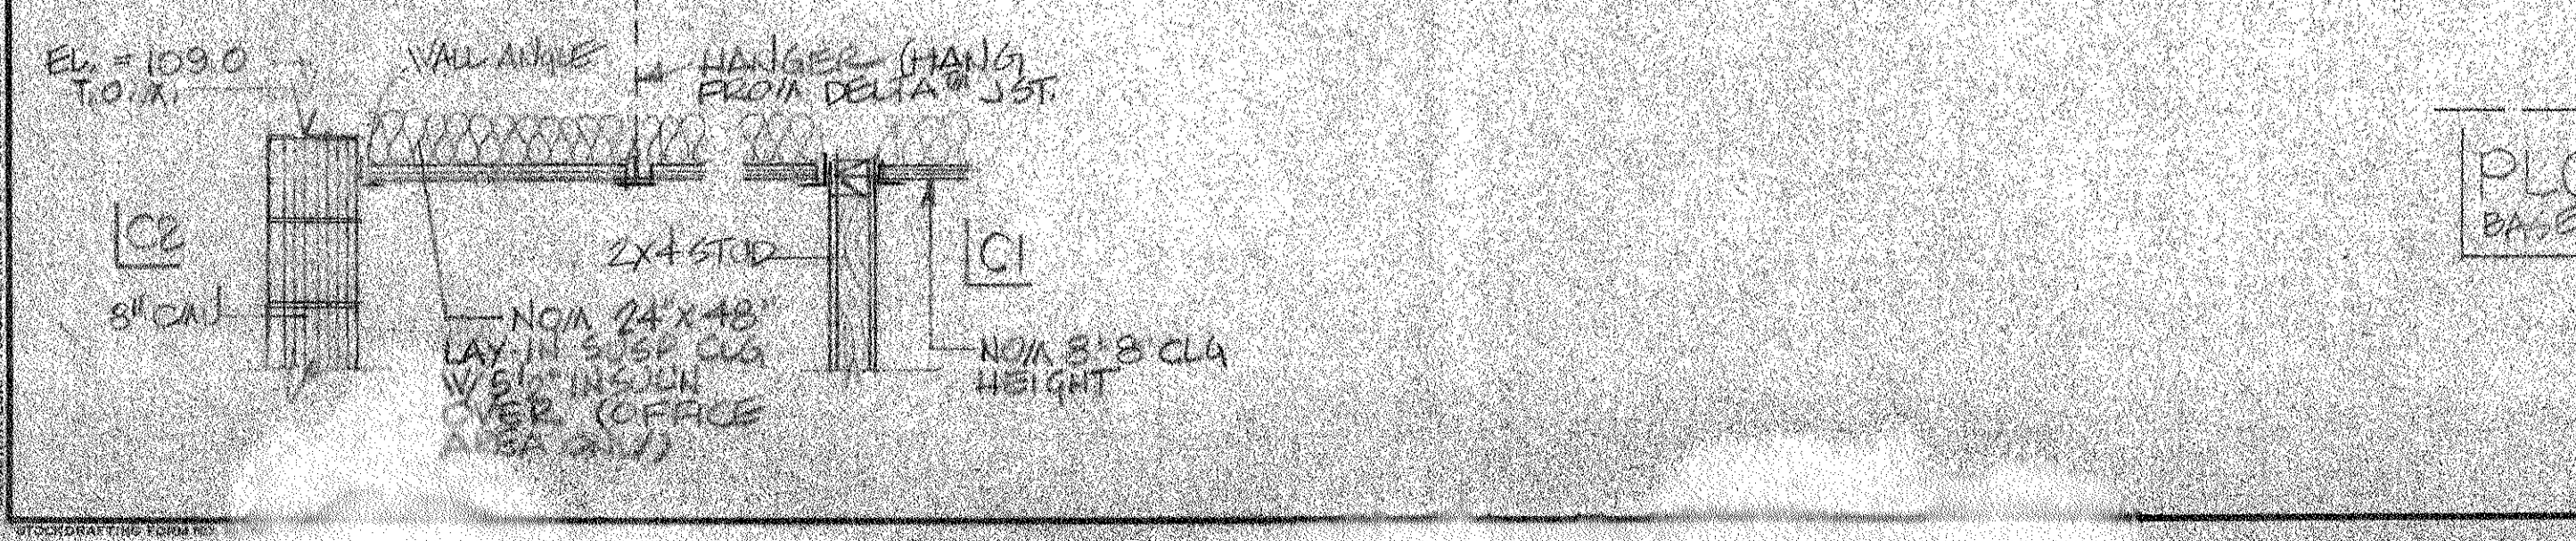 EL. = 109.0
T.O.M.
WALL ANGLE
HANGER (HANG
FROM DELTA JST.
C2
8" CMU
2X4 STUD
C1
NOM 24" X 48"
LAY-IN SUSP CLG
W/ 5 1/2" INSULN
OVER (OFFICE
AREA ONLY)
NOM 8'-8 CLG
HEIGHT
BASE
STOCK DRAFTING FORM